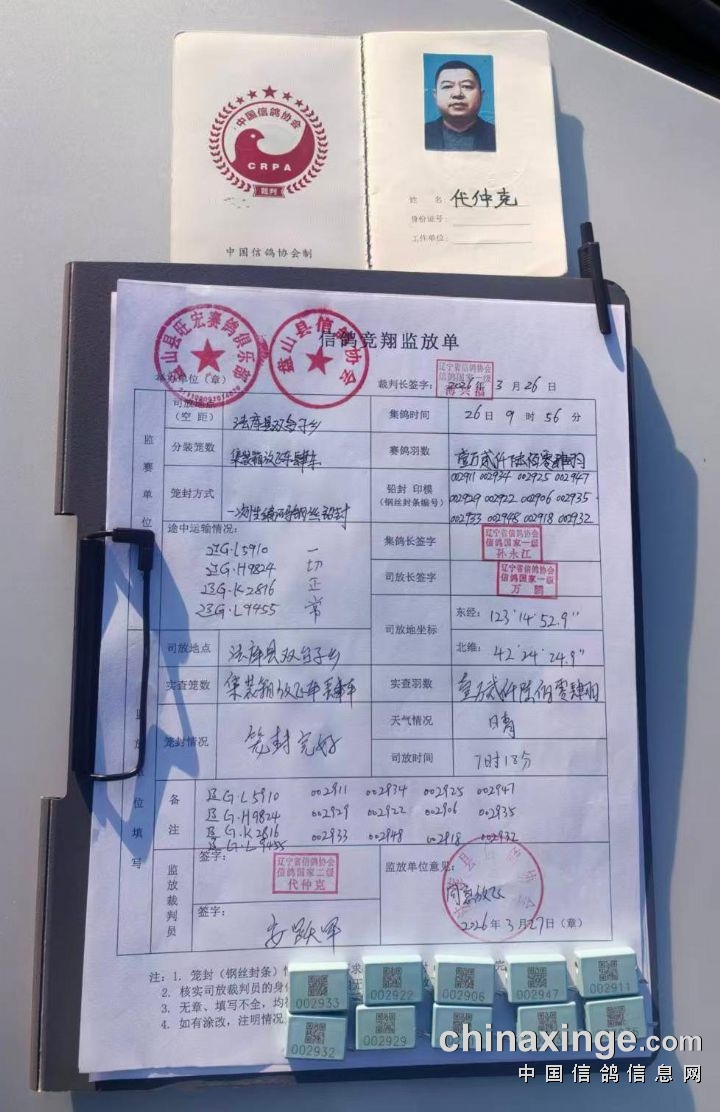 中国信鸽协会
CRPA
裁判
中国信鸽协会制
姓 名: 代仲克
身份证号:
工作单位:
盘山县旺宏赛鸽俱乐部
盘山县信鸽协会
信鸽竞翔监放单
举办单位（章）
裁判长签字:
辽宁省信鸽协会
信鸽国家一级
2026年3月26日
监赛单位
司放地点
（空 距）
法库县双台子乡
集鸽时间
26日9时56分
分装笼数
集装箱放飞车肆车
赛鸽羽数
壹万贰仟陆佰零肆羽
笼封方式
一次性编码钢丝铅封
铅封 印模
(钢丝封条编号)
002911 002934 002925 002947
002929 002922 002906 002935
002933 002948 002918 002932
途中运输情况:
辽G·L5910 一
辽G·H9824 切
辽G·K2816 正
辽G·L9455 常
集鸽长签字
辽宁省信鸽协会
信鸽国家一级
孙永江
司放长签字
辽宁省信鸽协会
信鸽国家一级
万鹏
司放地坐标
东经: 123°14′52.9″
北维: 42°24′24.9″
司放地点
法库县双台子乡
实查笼数
集装箱放飞车肆车
实查羽数
壹万贰仟陆佰零肆羽
笼封情况
笼封完好
天气情况
晴
司放时间
7时18分
位填写
备注
辽G·L5910 002911 002934 002925 002947
辽G·H9824 002929 002922 002906 002935
辽G·K2816 002933 002948 002918 002932
辽G·L9455
监放裁判员
签字:
辽宁省信鸽协会
信鸽国家二级
代仲克
签字:
监放单位意见:
同意放飞
2026年3月27日（章）
注: 1. 笼封（钢丝封条）
2. 核实司放裁判员的身
3. 无章、填写不全，均
4. 如有涂改，注明情况
002933
002922
002906
002947
002911
002932
002929
chinaxinge.com
中国信鸽信息网